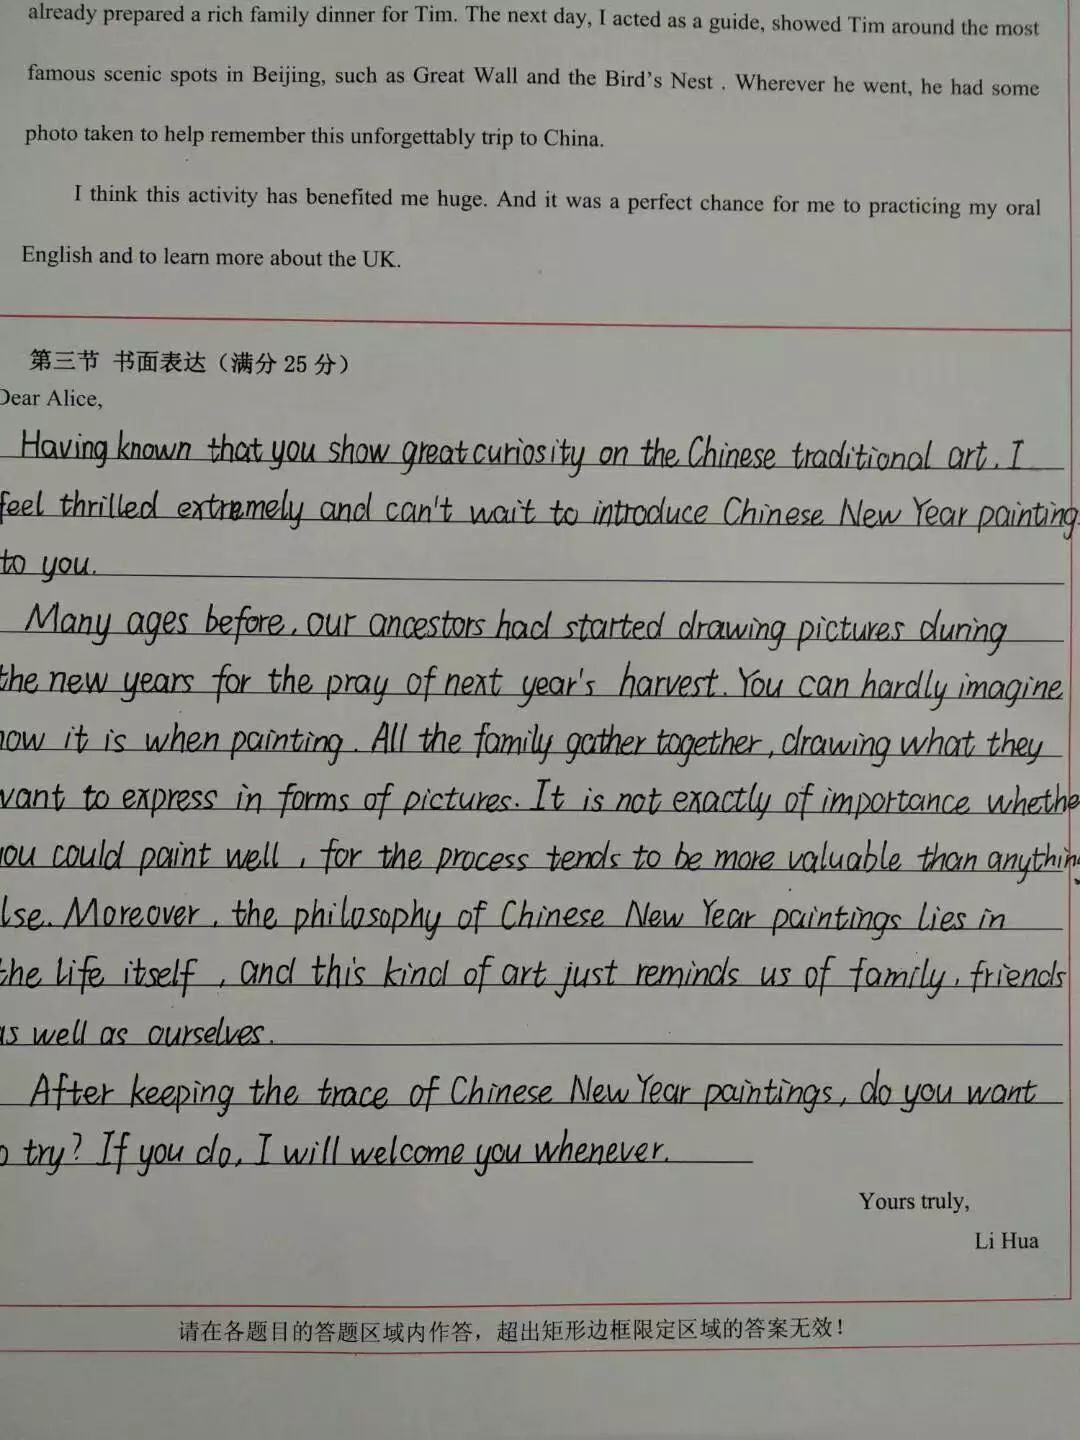 already prepared a rich family dinner for Tim. The next day, I acted as a guide, showed Tim around the most
famous scenic spots in Beijing, such as Great Wall and the Bird's Nest . Wherever he went, he had some
photo taken to help remember this unforgettably trip to China.
I think this activity has benefited me huge. And it was a perfect chance for me to practicing my oral
English and to learn more about the UK.
第三节 书面表达（满分 25 分）
Dear Alice,
Having known that you show great curiosity on the Chinese traditional art. I
feel thrilled extremely and can't wait to introduce Chinese New Year painting
to you.
Many ages before, our ancestors had started drawing pictures during
the new years for the pray of next year's harvest. You can hardly imagine
how it is when painting. All the family gather together, drawing what they
want to express in forms of pictures. It is not exactly of importance whethe
you could paint well, for the process tends to be more valuable than anything
lse. Moreover, the philosophy of Chinese New Year paintings lies in
the life itself, and this kind of art just reminds us of family, friends
as well as ourselves.
After keeping the trace of Chinese New Year paintings, do you want
o try? If you do, I will welcome you whenever.
Yours truly,
Li Hua
请在各题目的答题区域内作答，超出矩形边框限定区域的答案无效！